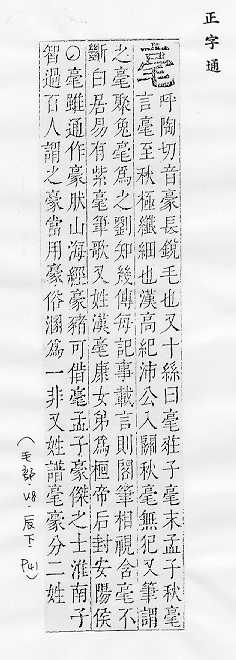 正字通
毫
呼陶切音豪長銳毛也又十絲曰毫莊子毫末孟子秋毫
言毫至秋極纖細也漢高紀沛公入關秋毫無犯又筆謂
之毫聚兔毫爲之劉知幾傳每記事載言則閣筆相視含毫不
斷白居易有紫毫筆歌又姓漢毫康女弟爲桓帝后封安陽侯
○毫雖通作豪肰山海經豪豬可借毫孟子豪傑之士淮南子
智過百人謂之豪當用豪俗溷爲一非又姓譜毫豪分二姓
(毛部 V8.辰下.P41)